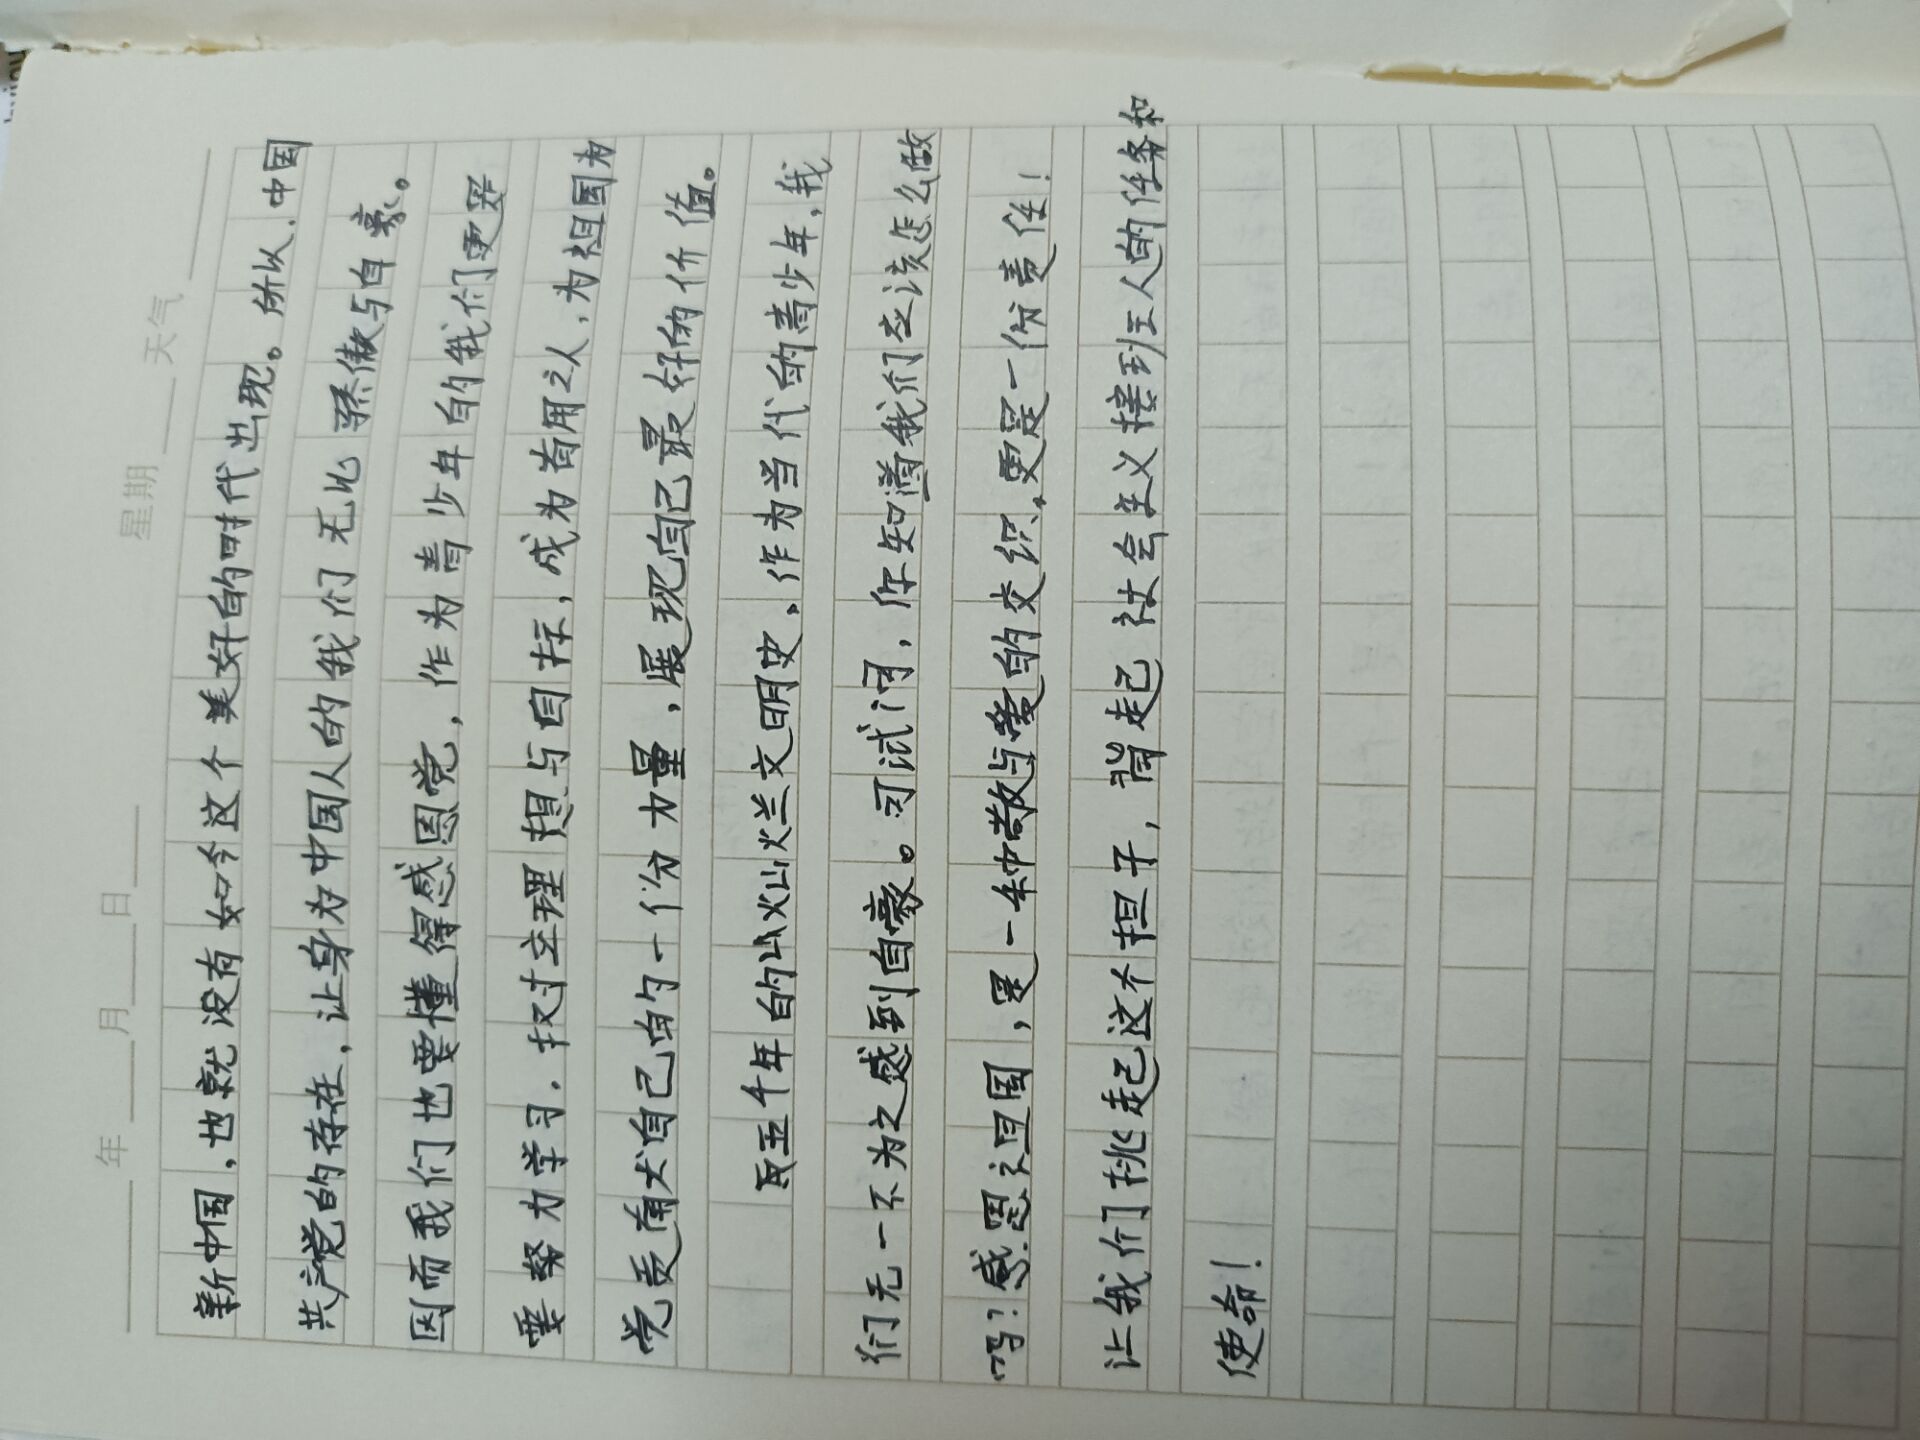 年 月 日 星期 天气
新中国，也就没有如今这个美好的时代出现。所以，中国
共产党的存在，让身为中国人的我们无比骄傲与自豪。
因而我们也要懂得感恩党，作为青少年的我们更是
要努力学习，树立理想与目标，成为有用之人，为祖国为
党贡献自己的一份力量，展现自己最好的价值。
五千年的灿烂文明史，作为当代的青少年，我
们无一不为之感到自豪。可试问，你知道我们应该怎么做
吗？感恩祖国，是一种敬与爱的交织，更是一份责任！
让我们挑起这个担子，肩起社会主义接班人的任务和
使命！